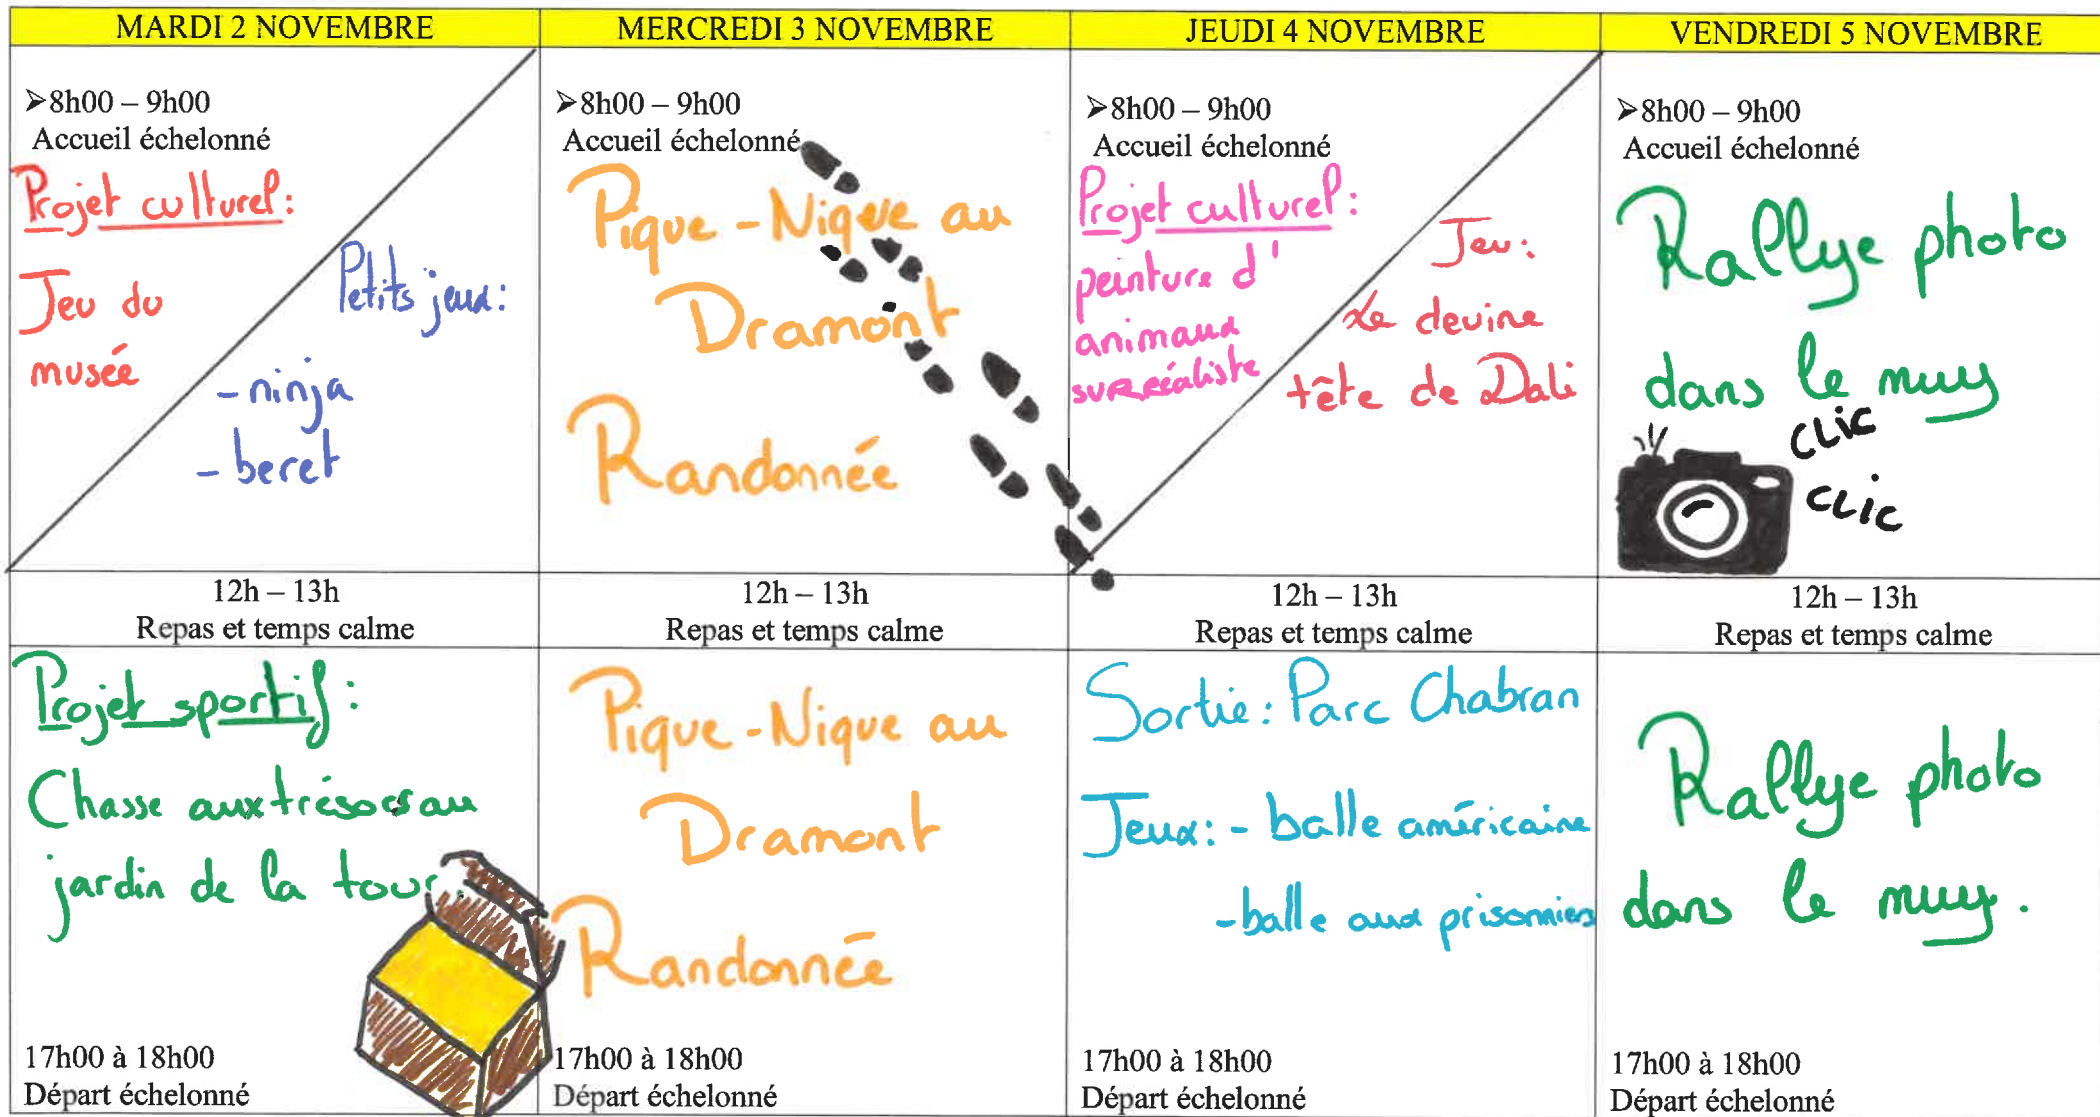 MARDI 2 NOVEMBRE
MERCREDI 3 NOVEMBRE
JEUDI 4 NOVEMBRE
VENDREDI 5 NOVEMBRE
➢8h00 – 9h00
Accueil échelonné
Projet culturel:
Jeu du
musée
Petits jeux:
- ninja
- beret
➢8h00 – 9h00
Accueil échelonné
Pique-Nique au
Dramont
Randonnée
➢8h00 – 9h00
Accueil échelonné
Projet culturel:
peinture d'
animaux
surréaliste
Jeu:
Le devine
tête de Dali
➢8h00 – 9h00
Accueil échelonné
Rallye photo
dans le muy
CLIC
CLIC
12h – 13h
Repas et temps calme
12h – 13h
Repas et temps calme
12h – 13h
Repas et temps calme
12h – 13h
Repas et temps calme
Projet sportif:
Chasse aux trésors au
jardin de la tour.
17h00 à 18h00
Départ échelonné
Pique-Nique au
Dramont
Randonnée
17h00 à 18h00
Départ échelonné
Sortie: Parc Chabran
Jeux: - balle américaine
- balle aux prisonniers
17h00 à 18h00
Départ échelonné
Rallye photo
dans le muy.
17h00 à 18h00
Départ échelonné